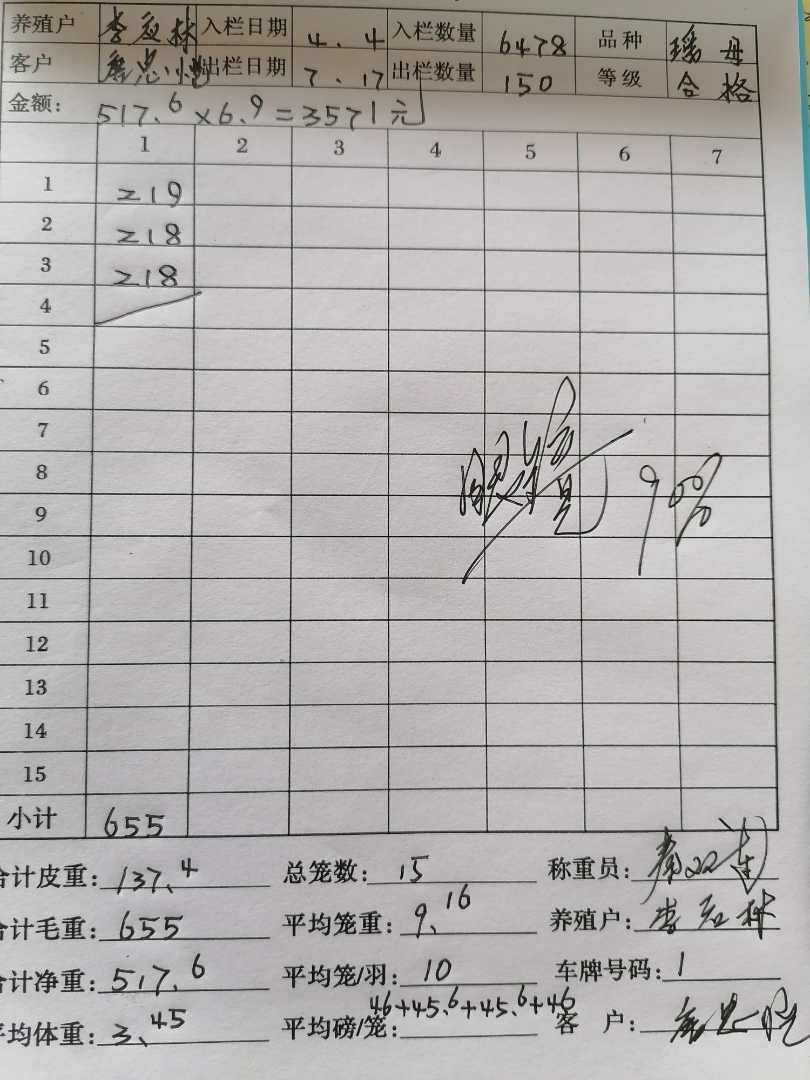 养殖户 李 林 入栏日期 4.4 入栏数量 6478 品种 瑶母
客户 出栏日期 7.17 出栏数量 150 等级 合格
金额: 517.6×6.9=3571元
1 2 3 4 5 6 7
1 219
2 218
3 218
4
5
6
7
8
9 90%
10
11
12
13
14
15
小计 655
合计皮重: 137.4 总笼数: 15 称重员:
合计毛重: 655 平均笼重: 9.16 养殖户: 李 林
合计净重: 517.6 平均笼/羽: 10 车牌号码: 1
平均体重: 3.45 平均磅/笼: 46+45.6+45.6+46 客 户: